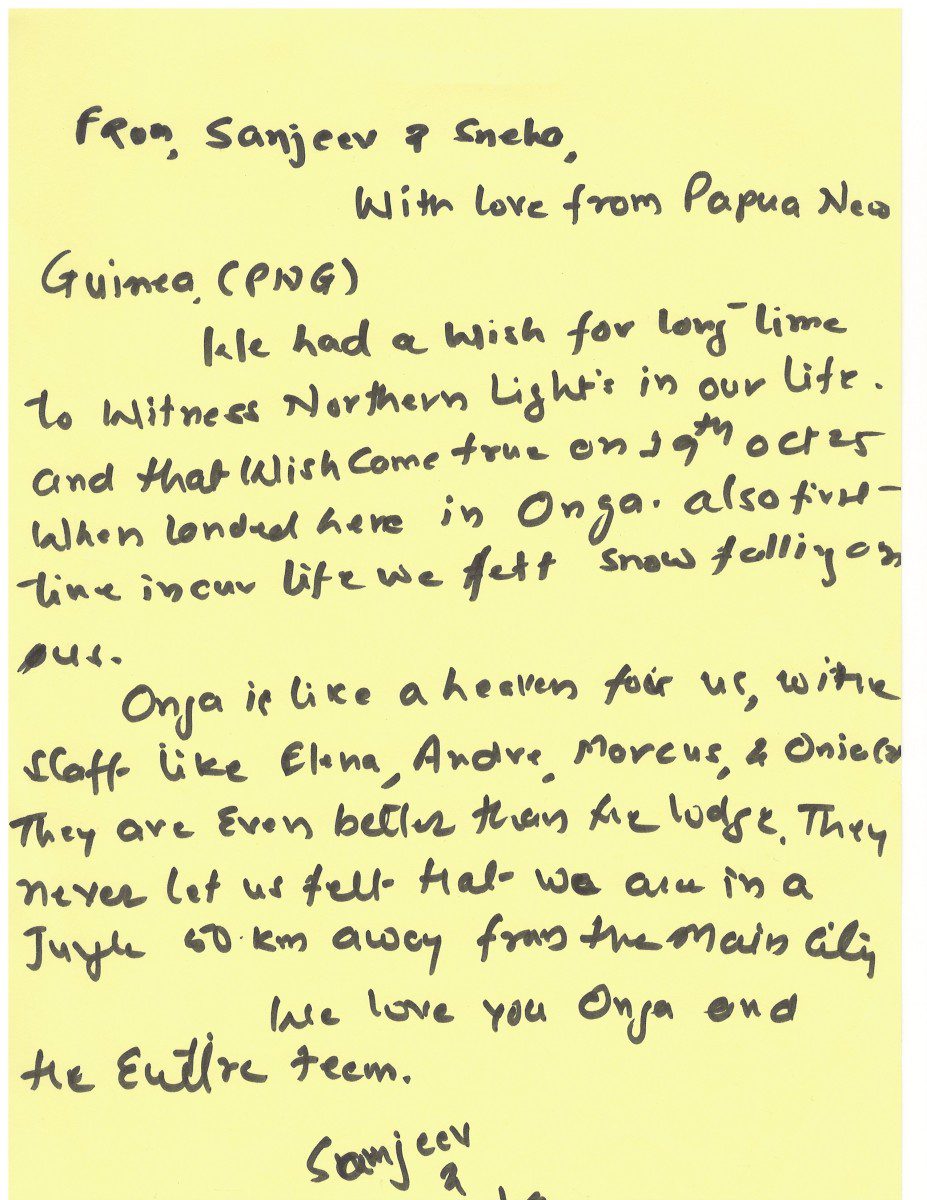 From, Sanjeev & Sneha,
With love from Papua New
Guinea, (PNG)
We had a wish for long-time
to witness Northern Light's in our life.
and that wish come true on 19th oct 25
When landed here in Onga. also first-
time in our life we felt snow falling on
us.
Onga is like a heaven for us, with
staff like Elena, Andre, Marcus, &
They are Even better than the lodge. They
never let us felt that we are in a
Jungle 50 km away from the main city
We love you Onga and
the Entire team.
Sanjeev
&